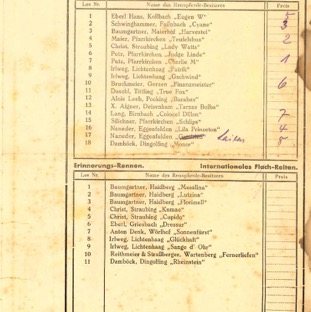 Los Nr. Name des Rennpferde-Besitzers Preis
1 Eberl Hans, Kollbach „Eugen W“ 5
2 Schwinghammer, „Cyane“ 3
3 Baumgartner, Maierhof „Harvester“
4 Maier, Pfarrkirchen „Teufelsbua“ 2
5 Christ, Straubing „Lady Watts“
6 Putz, Pfarrkirchen „Judge Linde“
7 Putz, Pfarrkirchen „Charlie M“ 1
8 Irlweg, Lichtenhaag
9 Irlweg, Lichtenhaag „Gschwind“
10 Burkmann, Gorzen „Finanzmeister“ 6
11 Danzl, Titling „True Fox“
12 Alois Loth, Pocking
13 X. Aigner,
14 Lang, Birnbach „Colonel Dillon“ 7
15 Pfarrkirchen „Schlips“
16 Naneder, Eggenfelden „Lila Princeton“ 4
17 Naneder, Eggenfelden
18 Damböck, Dingolfing
Erinnerungs-Rennen. Internationales Flach-Reiten.
Los Nr. Name des Rennpferde-Besitzers Preis
1 Baumgartner, Haidberg „Messalina“
2 Baumgartner, Haidberg
3 Baumgartner, Haidberg
4 Christ, Straubing
5 Christ, Straubing „Cupido“
6 Eberl, Griesbach „Dressur“
7 Anton Denk, Wörlhof „Sonnenfürst“
8 Irlweg, Lichtenhaag „Glückhuft“
9 Irlweg, Lichtenhaag „Sange d' Ohr“
10 Reithmeier & Straßberger, Wartenberg „Fernerliefen“
11 Damböck, Dingolfing „Rheinstein“